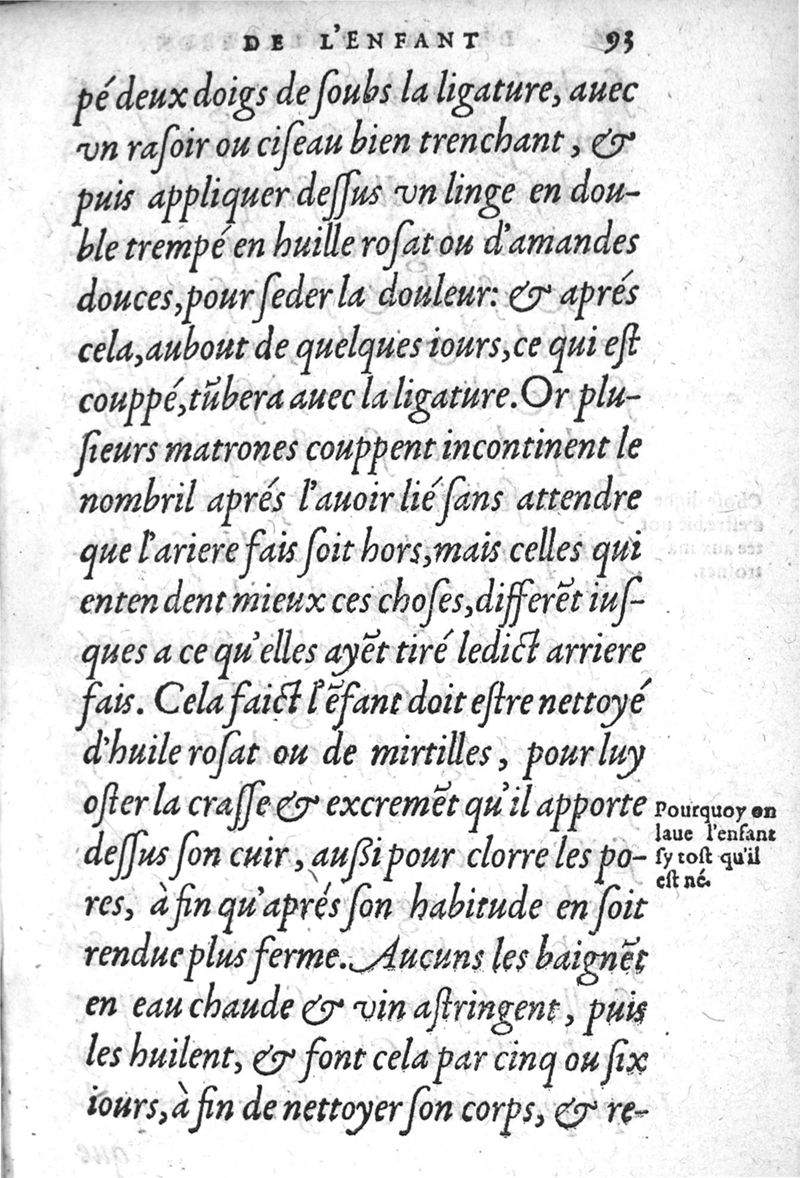 DE L'ENFANT 93
pé deux doigs de ſoubs la ligature, auec
vn raſoir ou ciſeau bien trenchant, &
puis appliquer deſſus vn linge en dou-
ble trempé en huille roſat ou d'amandes
douces, pour ſeder la douleur: & aprés
cela, aubout de quelques iours, ce qui eſt
couppé, tũbera auec la ligature. Or plu-
ſieurs matrones couppent incontinent le
nombril aprés l'auoir lié ſans attendre
que l'ariere fais ſoit hors, mais celles qui
entendent mieux ces choſes, differẽt iuſ-
ques a ce qu'elles ayẽt tiré ledict arriere
fais. Cela faict l'ẽfant doit eſtre nettoyé
d'huile roſat ou de mirtilles, pour luy
oſter la craſſe & excremẽt qu'il apporte
deſſus ſon cuir, außi pour clorre les po-
res, à fin qu'aprés ſon habitude en ſoit
rendue plus ferme. Aucuns les baignẽt
en eau chaude & vin aſtringent, puis
les huilent, & font cela par cinq ou ſix
iours, à fin de nettoyer ſon corps, & re-
Pourquoy on
laue l'enfant
ſy toſt qu'il
eſt né.